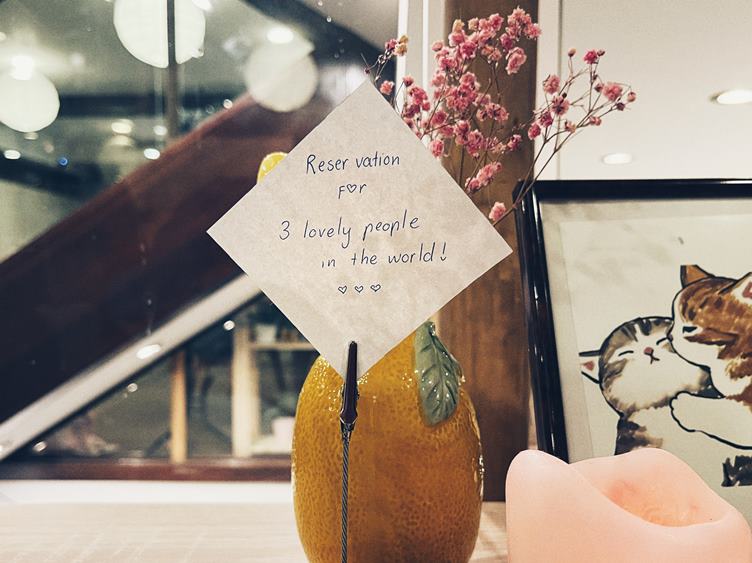 Reservation
F♡r
3 lovely people
in the world!
♡ ♡ ♡